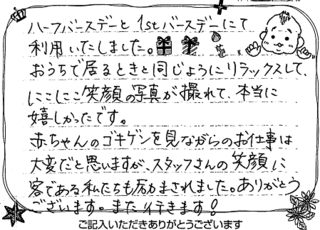 ハーフバースデーと1stバースデーにて
利用いたしました。
おうちで居るときと同じようにリラックスして、
にこにこ笑顔の写真が撮れて、本当に
嬉しかったです。
赤ちゃんのゴキゲンを見ながらのお仕事は
大変だと思いますが、スタッフさんの笑顔に
客である私たちも励まされました。ありがとう
ございます。また行きます！
ご記入いただきありがとうございます